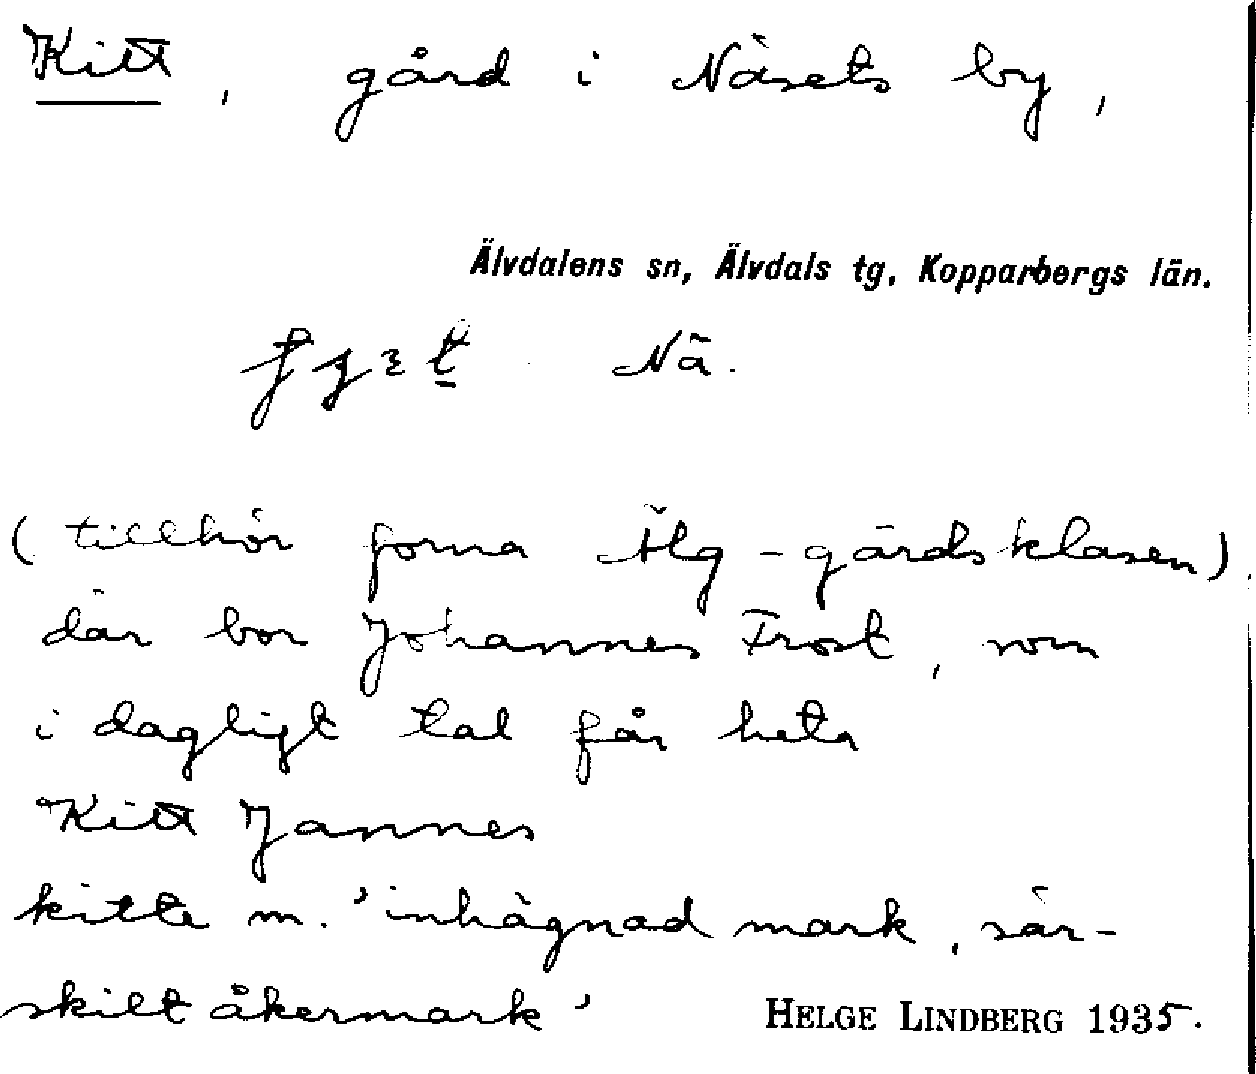 Kitt, gård i Näsets by,
Älvdalens sn, Älvdals tg, Kopparbergs län.
Nä.
(tillhör forna Älg-gårdsklasen)
där bor Johannes Frost, som
i dagligt tal får heta
Kitt Jannes
kitte m. 'inhägnad mark, sär-
skilt åkermark'
HELGE LINDBERG 1935.